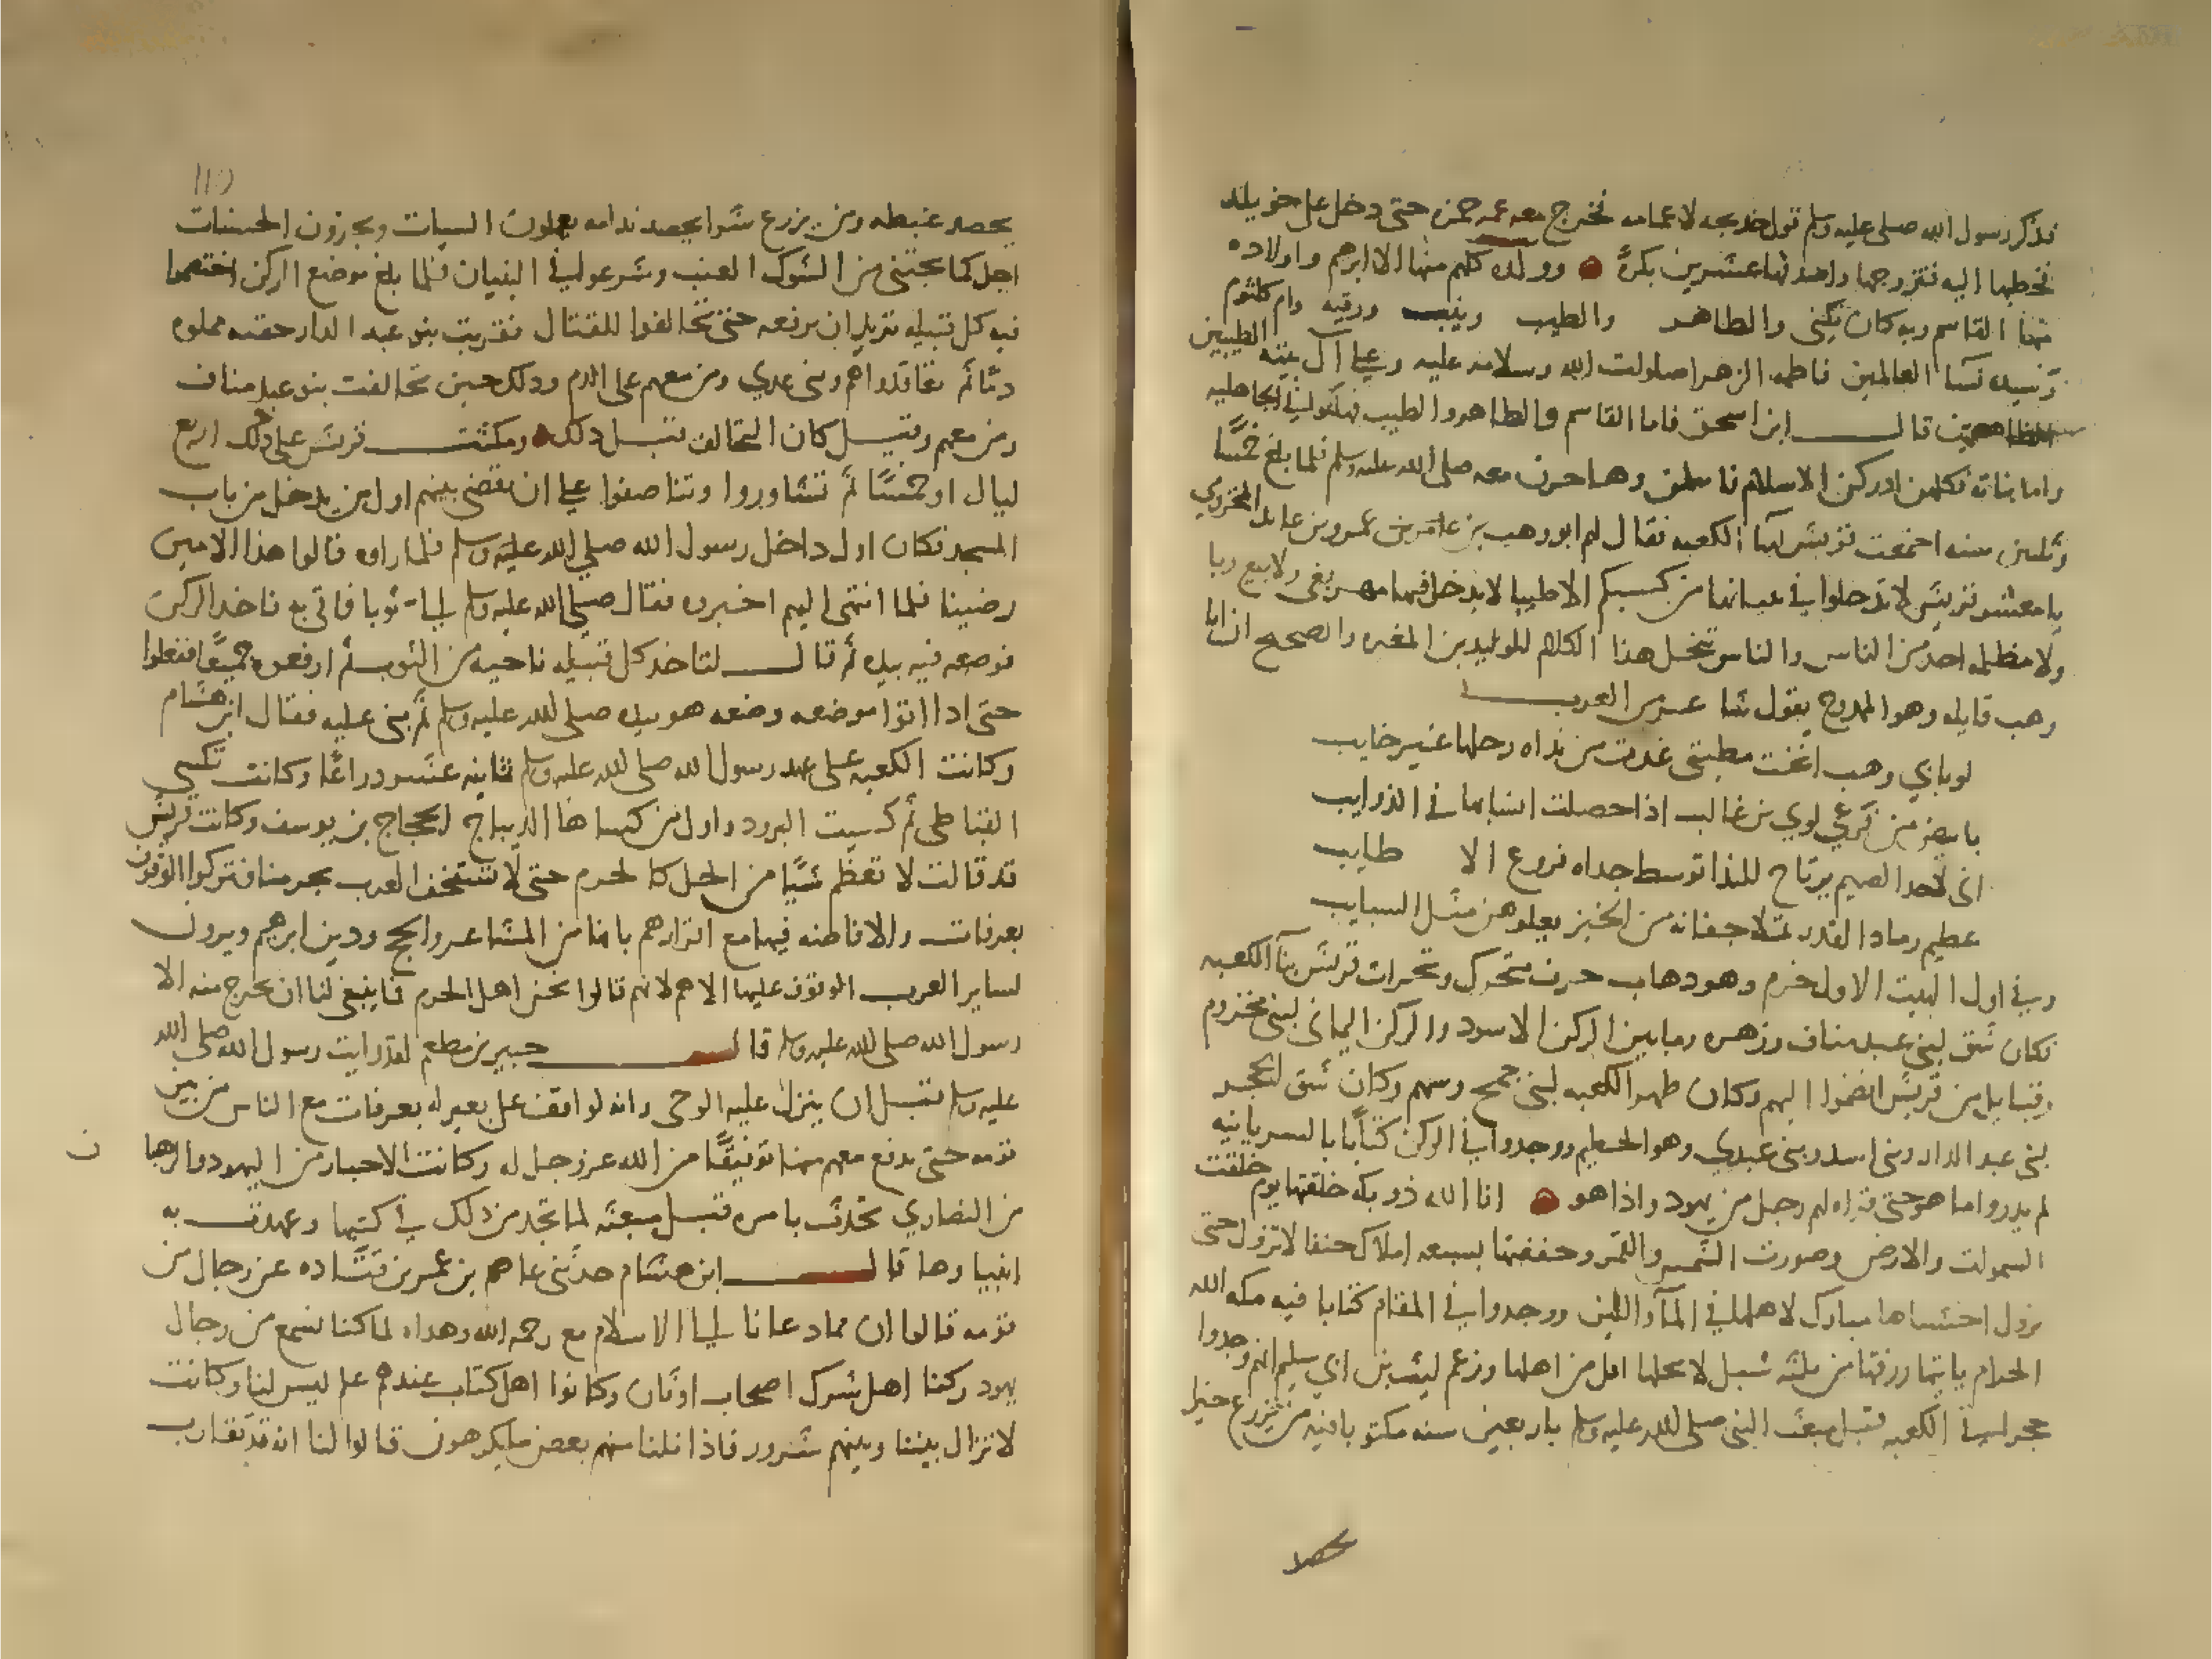 فذكر رسول الله صلى عليه وسلم قول خديجه لاعمامه فخرج معه عمه حمزه حتى دخل على خويلد
فخطبها اليه فتزوجها واصدقها عشرين بكرةً وولده كلهم منها الا ابرهيم واولاده
منها القاسم وبه كان يكنى والطاهر والطيب وزينب ورقيه وام كلثوم
وسيده نسا العالمين فاطمه الزهرا صلوات الله وسلامه عليه وعلى آل بيته الطيبين
قال ابن اسحق فاما القاسم والطاهر والطيب فهلكوا في الجاهليه
واما بناته فكلهن ادركن الاسلام فاسلمن وهاجرن معه صلى الله عليه وسلم فلما بلغ خمسًا
وثلثين سنه اجتمعت قريش لبنا الكعبه فقال لهم ابو وهب بن عامر بن عمرو بن عايد المخزومي
يا معشر قريش لا تدخلوا في بنيانها من كسبكم الا طيبا لا يدخل فيها مهر بغى ولا بيع ربا
ولا مظلمه احد من الناس والناس تنحل هذا الكلام للوليد بن المغيره والصحيح ان ابا
وهب قايله وهو المدوح يقول شاعر من العرب
لو بابي وهب انخت مطيتى غدت من نداه رحلها غير خايب
بابيض من فرعي لوي بن غالب اذا حصلت انسابها في الذوايب
ابى لاخذ الضيم يرتاح للندا توسط جداه فروع الاطايب
عظيم رماد القدر تملا جفانه من الخبز يعلوهن مثل السبايب
وفي اول البيت الاول خرم وهو ذهاب حرف متحرك وتجزات قريش بنآ الكعبه
فكان شق لبنى عبد مناف وزهره وما بين الركن الاسود والركن اليماني لبنى مخزوم
وقبايل من قريش انضموا اليهم وكان ظهر الكعبه لبنى جمح وسهم وكان شق الحجر
لبنى عبد الدار وبنى اسد وبنى عدي وهو الحطيم ووجدوا في الركن كتابًا بالسريانيه
لم يدروا ما هو حتى قراه لهم رجل من يهود واذا هو انا الله ذو بكه خلقتها يوم خلقت
السموات والارض وصورت الشمس والقمر وحففتها بسبعه املاك حنفا لا تزول حتى
يزول اخشباها مبارك لاهلها في المآ واللبن ووجدوا في المقام كتابا فيه مكه الله
الحرام ياتيها رزقها من ثلثه سبل لا يحلها اول من اهلها وزعم ليث بن ابي سليم انهم وجدوا
حجرا في الكعبه قبل مبعث النبى صلى الله عليه وسلم باربعين سنه مكتوبا فيه من يزرع خيرا
يحصد
110
يحصد غبطه ومن يزرع شرا يحصد ندامه يعملون السيات ويجزون الحسنات
اجل كما يجتنى من الشوك العنب وشرعوا في البنيان فلما بلغ موضع الركن اختصموا
فيه كل قبيله تريد ان ترفعه حتى تحالفوا للقتال فقربت بنو عبد الدار جفنه مملوه
دمًا ثم تعاقدوا هم وبنى عدي ومن معهم على الدم وذلك حين تحالفت بنو عبد مناف
ومن معهم وقيل كان التحالف قبل ذلك ومكثت قريش على ذلك اربع
ليال او خمسًا ثم تشاوروا وتناصفوا على ان يقضى بينهم اول من يدخل من باب
المسجد فكان اول داخل رسول الله صلى الله عليه وسلم فلما راوه قالوا هذا الامين
رضينا فلما انتهى اليهم اخبروه فقال صلى الله عليه وسلم الى ثوبا فاتي به فاخذ الركن
فوضعه فيه بيده ثم قال لتاخذ كل قبيله ناحيه من الثوب ثم ارفعوه جميعًا ففعلوا
حتى اذا اتوا موضعه وضعه هو بيده صلى الله عليه وسلم ثم بنى عليه فقال ابن هشام
وكانت الكعبه على عهد رسول الله صلى الله عليه وسلم ثمانيه عشر دراعًا وكانت تكسى
القباطى ثم كسيت البرود واول من كساها الديباج الحجاج بن يوسف وكانت قريش
قد قالت لا تعظم شيًا من الحل كالحرم حتى لا تستخف العرب بحرمنا فتركوا الوقوف
بعرفات والافاضه فيها مع اقرارهم بانها من المشاعر والحج ودين ابرهيم ويرون
لساير العرب الوقوف عليها الا هم لانهم قالوا نحن اهل الحرم فما ينبغى لنا ان نخرج منه الا
رسول الله صلى الله عليه وسلم قال جبير بن مطعم لقد رايت رسول الله صلى الله
عليه وسلم قبل ان ينزل عليه الوحى وانه لواقف على بعير له بعرفات مع الناس من بين
قومه حتى يدفع معهم منها توفيقًا من الله عز وجل له وكانت الاحبار من اليهود والرهبا
ن
من النصاري تحدث بامره قبل مبعثه لما تجد من ذلك في كتبها وعهدت به
انبياوها قال ابن هشام حدثنى عاصم بن عمر بن قتاده عن رجال من
قومه قالوا ان مما دعانا الى الاسلام مع رحمه الله وهداه لما كنا نسمع من رجال
يهود وكنا اهل شرك اصحاب اوثان وكانوا اهل كتاب عندهم علم ليس لنا وكانت
لا تزال بيننا وبينهم شرور فاذا نلنا منهم بعض ما يكرهون قالوا لنا انه قد تقارب